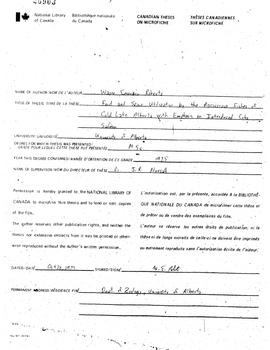 National Library of Canada
Bibliothèque nationale du Canada
CANADIAN THESES ON MICROFICHE
THÈSES CANADIENNES SUR MICROFICHE
NAME OF AUTHOR/NOM DE L'AUTEUR
Roberts
TITLE OF THESIS/TITRE DE LA THÈSE
Food and Space Utilization by the Fishes of
Cold Lake, Alberta with Emphasis on Introduced Coho
Salmon
UNIVERSITY/UNIVERSITÉ
University of Alberta
DEGREE FOR WHICH THESIS WAS PRESENTED/
GRADE POUR LEQUEL CETTE THÈSE FUT PRÉSENTÉE
M.Sc.
YEAR THIS DEGREE CONFERRED/ANNÉE D'OBTENTION DE CE GRADE
1975
NAME OF SUPERVISOR/NOM DU DIRECTEUR DE THÈSE
J.R.
Permission is hereby granted to the NATIONAL LIBRARY OF
CANADA to microfilm this thesis and to lend or sell copies
of the film.
The author reserves other publication rights, and neither the
thesis nor extensive extracts from it may be printed or other-
wise reproduced without the author's written permission.
L'autorisation est, par la présente, accordée à la BIBLIOTHÈ-
QUE NATIONALE DU CANADA de microfilmer cette thèse et
de prêter ou de vendre des exemplaires du film.
L'auteur se réserve les autres droits de publication; ni la
thèse ni de longs extraits de celle-ci ne doivent être imprimés
ou autrement reproduits sans l'autorisation écrite de l'auteur.
DATED/DATÉ
SIGNED/SIGNÉ
PERMANENT ADDRESS/RÉSIDENCE FIXE
Dept. of Zoology, University of Alberta